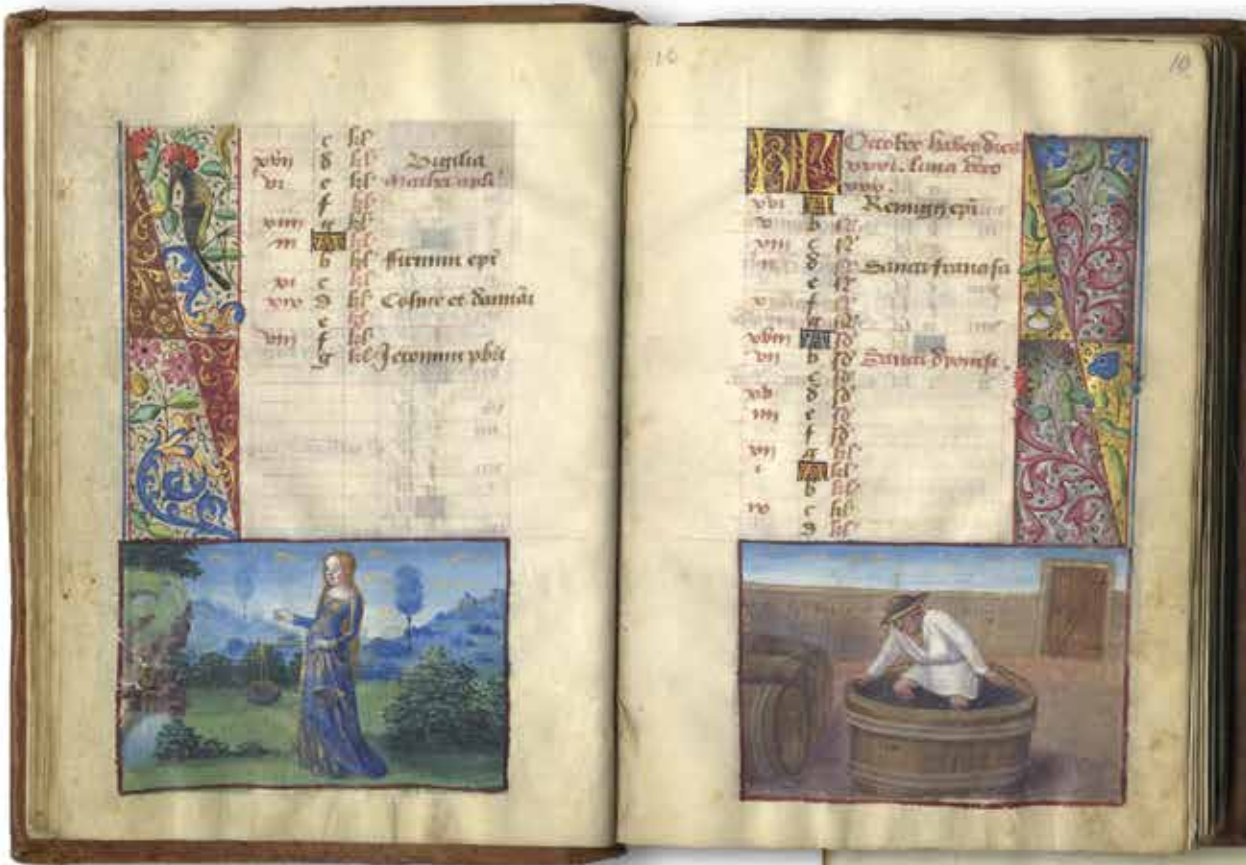 c kl
xvii d kl Vigilia
vi e kl Mathei apli
f kl
xiiii g kl
iii A kl
b kl ffirmini epi
xi c kl
xix d kl Cosme et damiani
e kl
viii f kl
g kl Jeronimi pbri
10
10
KL October habet dies
xxxi. luna vero
xxx.
xvi A Remigii epi
v b
xiii c
ii d Sancti francisci
e
x f
g
xviii A
vii b Sancti dyonisii
c
xv d
iiii e
f
xii g kl
i A kl
b kl
ix c kl
d kl